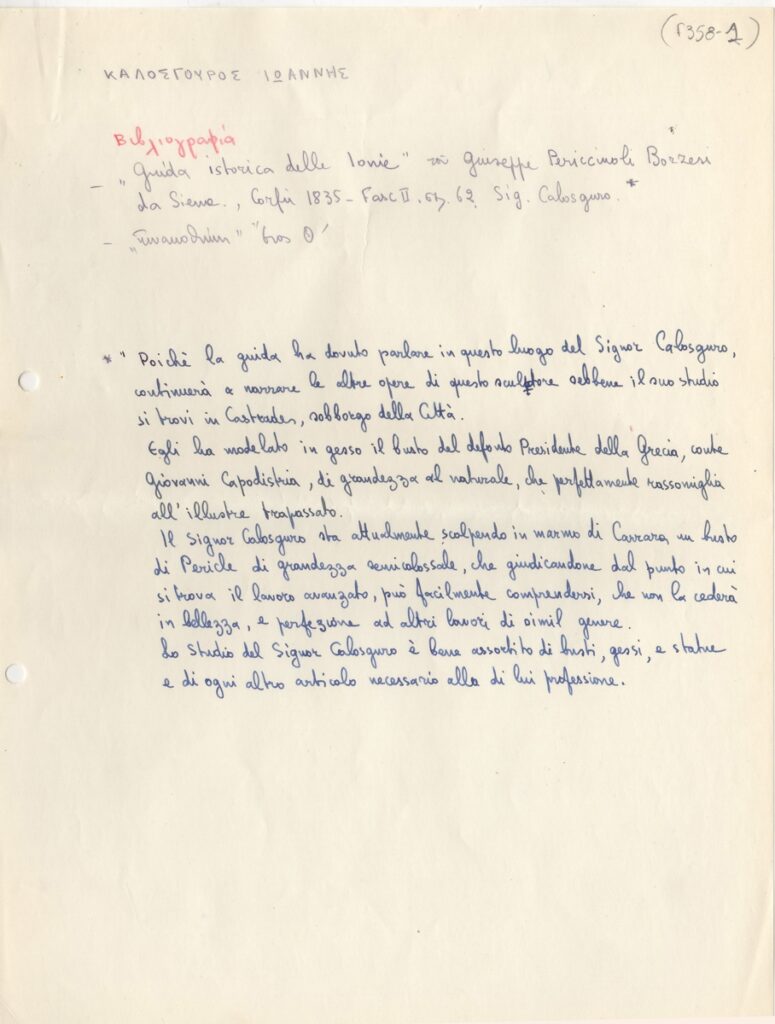 (Γ358-1)
ΚΑΛΟΣΓΟΥΡΟΣ ΙΩΑΝΝΗΣ
Βιβλιογραφία
- "Guida istorica delle Ionie" τοῦ Giuseppe Periccinoli Borzesi
da Siena., Corfù 1835 - Fasc II. σελ. 62. Sig. Calosguro. *
- "Πινακοθήκη" ἔτος Θ'
* "Poichè la guida ha dovuto parlare in questo luogo del Signor Calosguro,
continuerà a narrare le altre opere di questo scultore sebbene il suo studio
si trovi in Castrades, sobborgo della Città.
Egli ha modelato in gesso il busto del defonto Presidente della Grecia, conte
Giovanni Capodistria, di grandezza al naturale, che perfettamente rassomiglia
all'illustre trapassato.
Il Signor Calosguro sta attualmente scolpendo in marmo di Carrara, un busto
di Pericle di grandezza semicolossale, che giudicandone dal punto in cui
si trova il lavoro avanzato, può facilmente comprendersi, che non la cederà
in bellezza, e perfezione ad altri lavori di simil genere.
Lo Studio del Signor Calosguro è bene assortito di busti, gessi, e statue
e di ogni altro articolo necessario alla di lui professione.